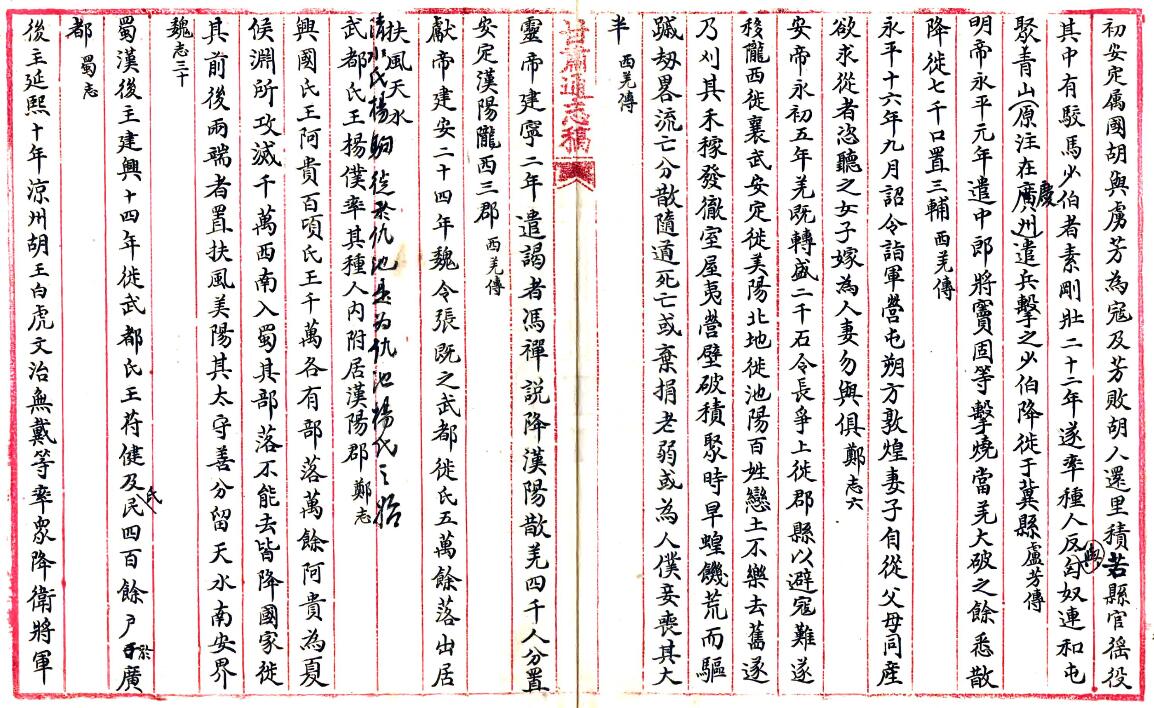 初安定属國胡與虜芳為寇及芳敗胡人還里積苦縣官徭役
其中有駁馬少伯者素剛壯二十二年遂率種人反與匈奴連和屯
聚青山原注在慶州遣兵擊之少伯降徙于冀縣盧芳傳
明帝永平元年遣中郎將竇固等擊燒當羌大破之餘悉散
降徙七千口置三輔西羌傳
永平十六年九月詔令詣軍營屯朔方敦煌妻子自從父母同產
欲求從者恣聽之女子嫁為人妻勿與俱鄭志六
安帝永初五年羌既轉盛二千石令長爭上徙郡縣以避寇難遂
移隴西徙襄武安定徙美陽北地徙池陽百姓戀土不樂去舊遂
乃刈其禾稼發徹室屋夷營壁破積聚時旱蝗饑荒而驅
蹴劫畧流亡分散隨道死亡或棄捐老弱或為人僕妾喪其大
半 西羌傳
甘肅通志稿
靈帝建寧二年遣謁者馮禪說降漢陽散羌四千人分置
安定漢陽隴西三郡西羌傳
獻帝建安二十四年魏令張既之武都徙氐五萬餘落出居
扶風天水
清水氐楊駒徙於仇池是為仇池楊氏之始
武都氐王楊僕率其種人內附居漢陽郡鄭志
興國氐王阿貴百頃氐王千萬各有部落萬餘阿貴為夏
侯淵所攻滅千萬西南入蜀其部落不能去皆降國家徙
其前後兩端者置扶風美陽其太守善分留天水南安界
魏志三十
蜀漢後主建興十四年徙武都氐王苻健及氐民四百餘戶於廣
都 蜀志
後主延熙十年涼州胡王白虎文治無戴等率眾降衛將軍